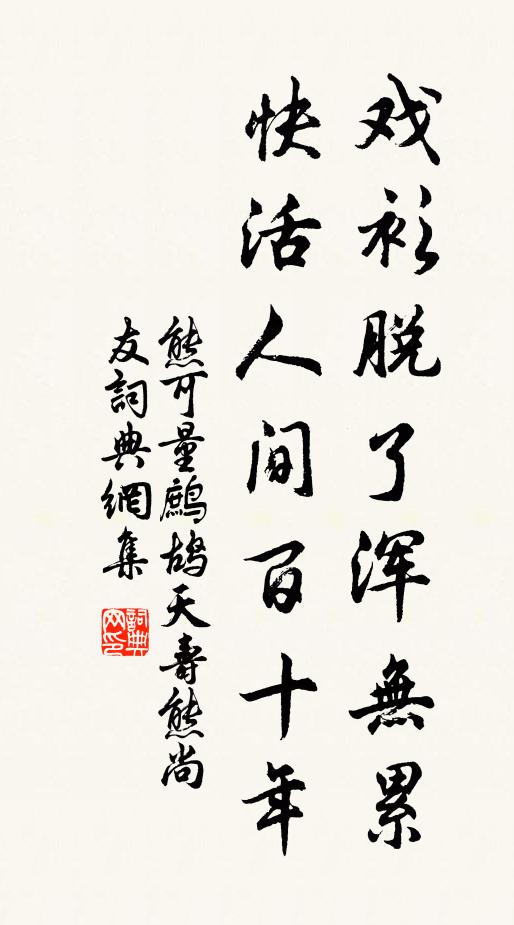 戏衫脱了浑無累
快活人间百十年
熊可量鷓鴣天壽熊尚
友詞典網集
詞典网印